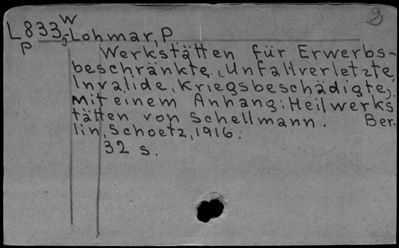 W
L833 Lohmar, P
P
Werkstätten für Erwerbs-
beschränkte, (Unfallverletzte,
Invalide, Kriegsbeschädigte).
Mit einem Anhang: Heilwerks
tätten von Schellmann. Ber-
lin, Schoetz, 1916.
32 s.